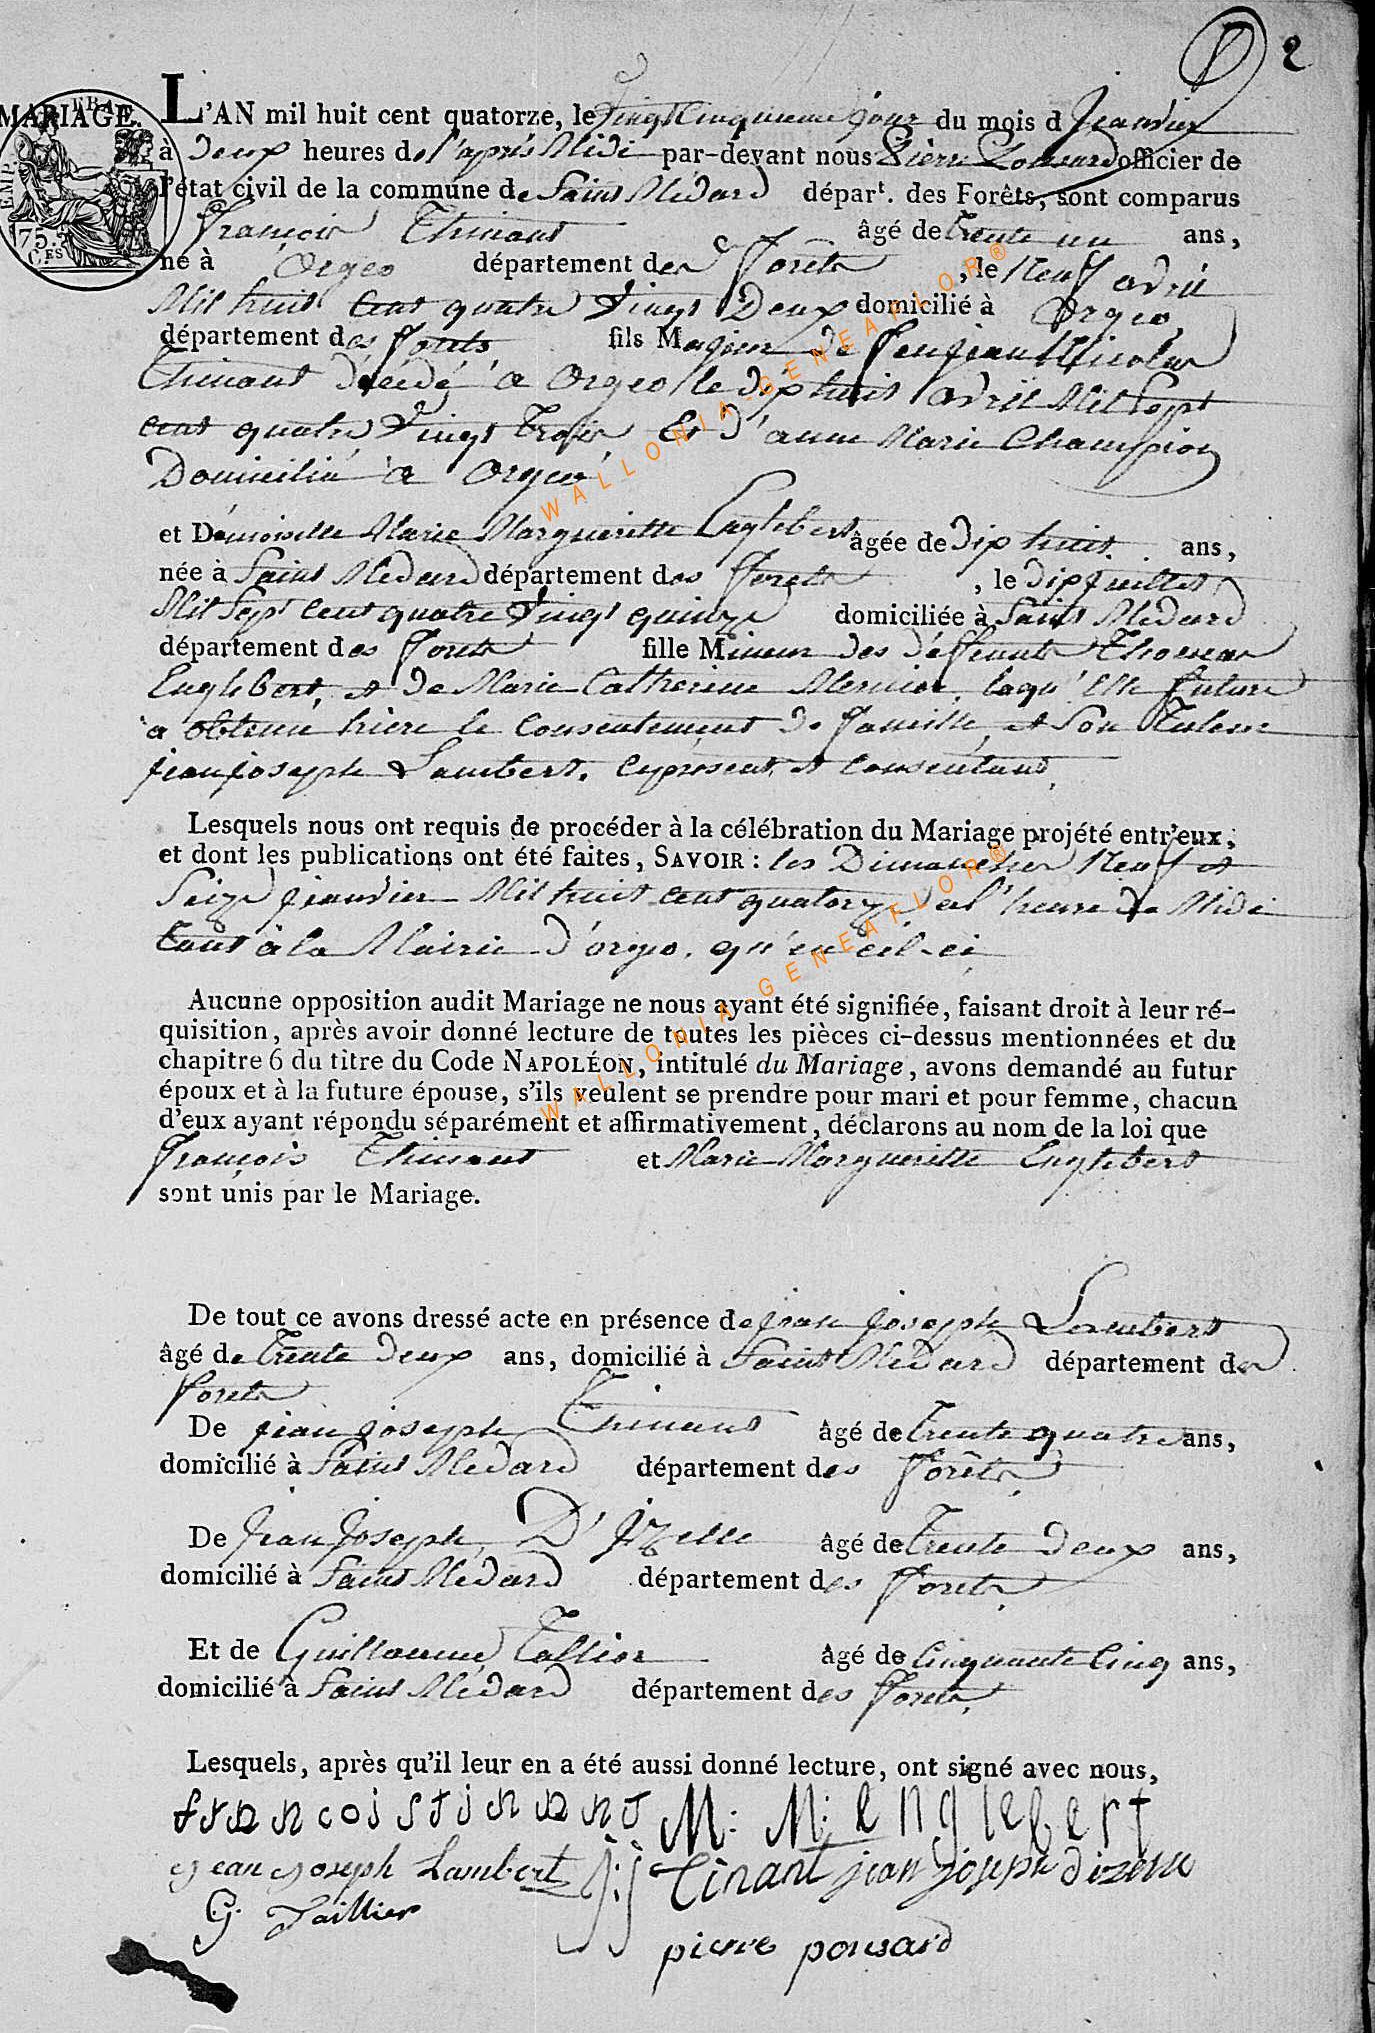 2
MARIAGE.
L'AN mil huit cent quatorze, le Vingt Cinquieme jour du mois d Jeanvier
à Deux heures de l'après Midi par-devant nous Pierre Ponsard officier de
l'état civil de la commune de Saint Médard dépar.t des Forêts, sont comparus
François Thinant âgé de Trente un ans,
né à Orgeo département des Forêts, le Neuf avril
Mil huit Cent quatre Vingt Deux domicilié à Orgeo,
département des Forêts fils Majeur de feu jean Nicolas
Thinant Décédé à Orgeo le dix huit avril Mil Sept
cent quatre Vingt Trois Et d'anne Marie Champion
Domicilié à Orgeo
et Démoiselle Marie Margueritte Englebert âgée de Dix huit ans,
née à Saint Médard département des Forets, le dix juillet
Mil Sept cent quatre Vingt quinze domiciliée à Saint Médard
département des Forets fille Mineur des déffunts Thomas
Englebert et de Marie Catherine Mernier, laqu'elle future
a obtenu hière le Consentement de famille, et Son Tuteur
jean joseph Lambert, cy présent et consentant,
Lesquels nous ont requis de procéder à la célébration du Mariage projété entr'eux,
et dont les publications ont été faites, SAVOIR : les Dimanches Neuf et
Seize jeanvier Mil huit cent quatorze a l'heure de Midi
tant à la Mairie d'orgeo, qu'en cel-ci
Aucune opposition audit Mariage ne nous ayant été signifiée, faisant droit à leur ré-
quisition, après avoir donné lecture de toutes les pièces ci-dessus mentionnées et du
chapitre 6 du titre du Code NAPOLÉON, intitulé du Mariage, avons demandé au futur
époux et à la future épouse, s'ils veulent se prendre pour mari et pour femme, chacun
d'eux ayant répondu séparément et affirmativement, déclarons au nom de la loi que
François Thinant et Marie Margueritte Englebert
sont unis par le Mariage.
De tout ce avons dressé acte en présence de jean joseph Lambert
âgé de Trente Deux ans, domicilié à Saint Médard département des
forets
De jean joseph Thinant âgé de Trente quatre ans,
domicilié à Saint Médard département des Forêts
De Jean Joseph D'Jzelle âgé de Trente Deux ans,
domicilié à Saint Médard département des Forets
Et de Guillaume Tallier âgé de Cinquante Cinq ans,
domicilié à Saint Médard département des Forets,
Lesquels, après qu'il leur en a été aussi donné lecture, ont signé avec nous,
francois tinant M: M: englebert
jean joseph Lambert j:j Tinant jean joseph dizelle
G. Taillier
pierre ponsard
EMP.
75.
C.ES
WALLONIA-GENEAFLOR®
WALLONIA-GENEAFLOR®